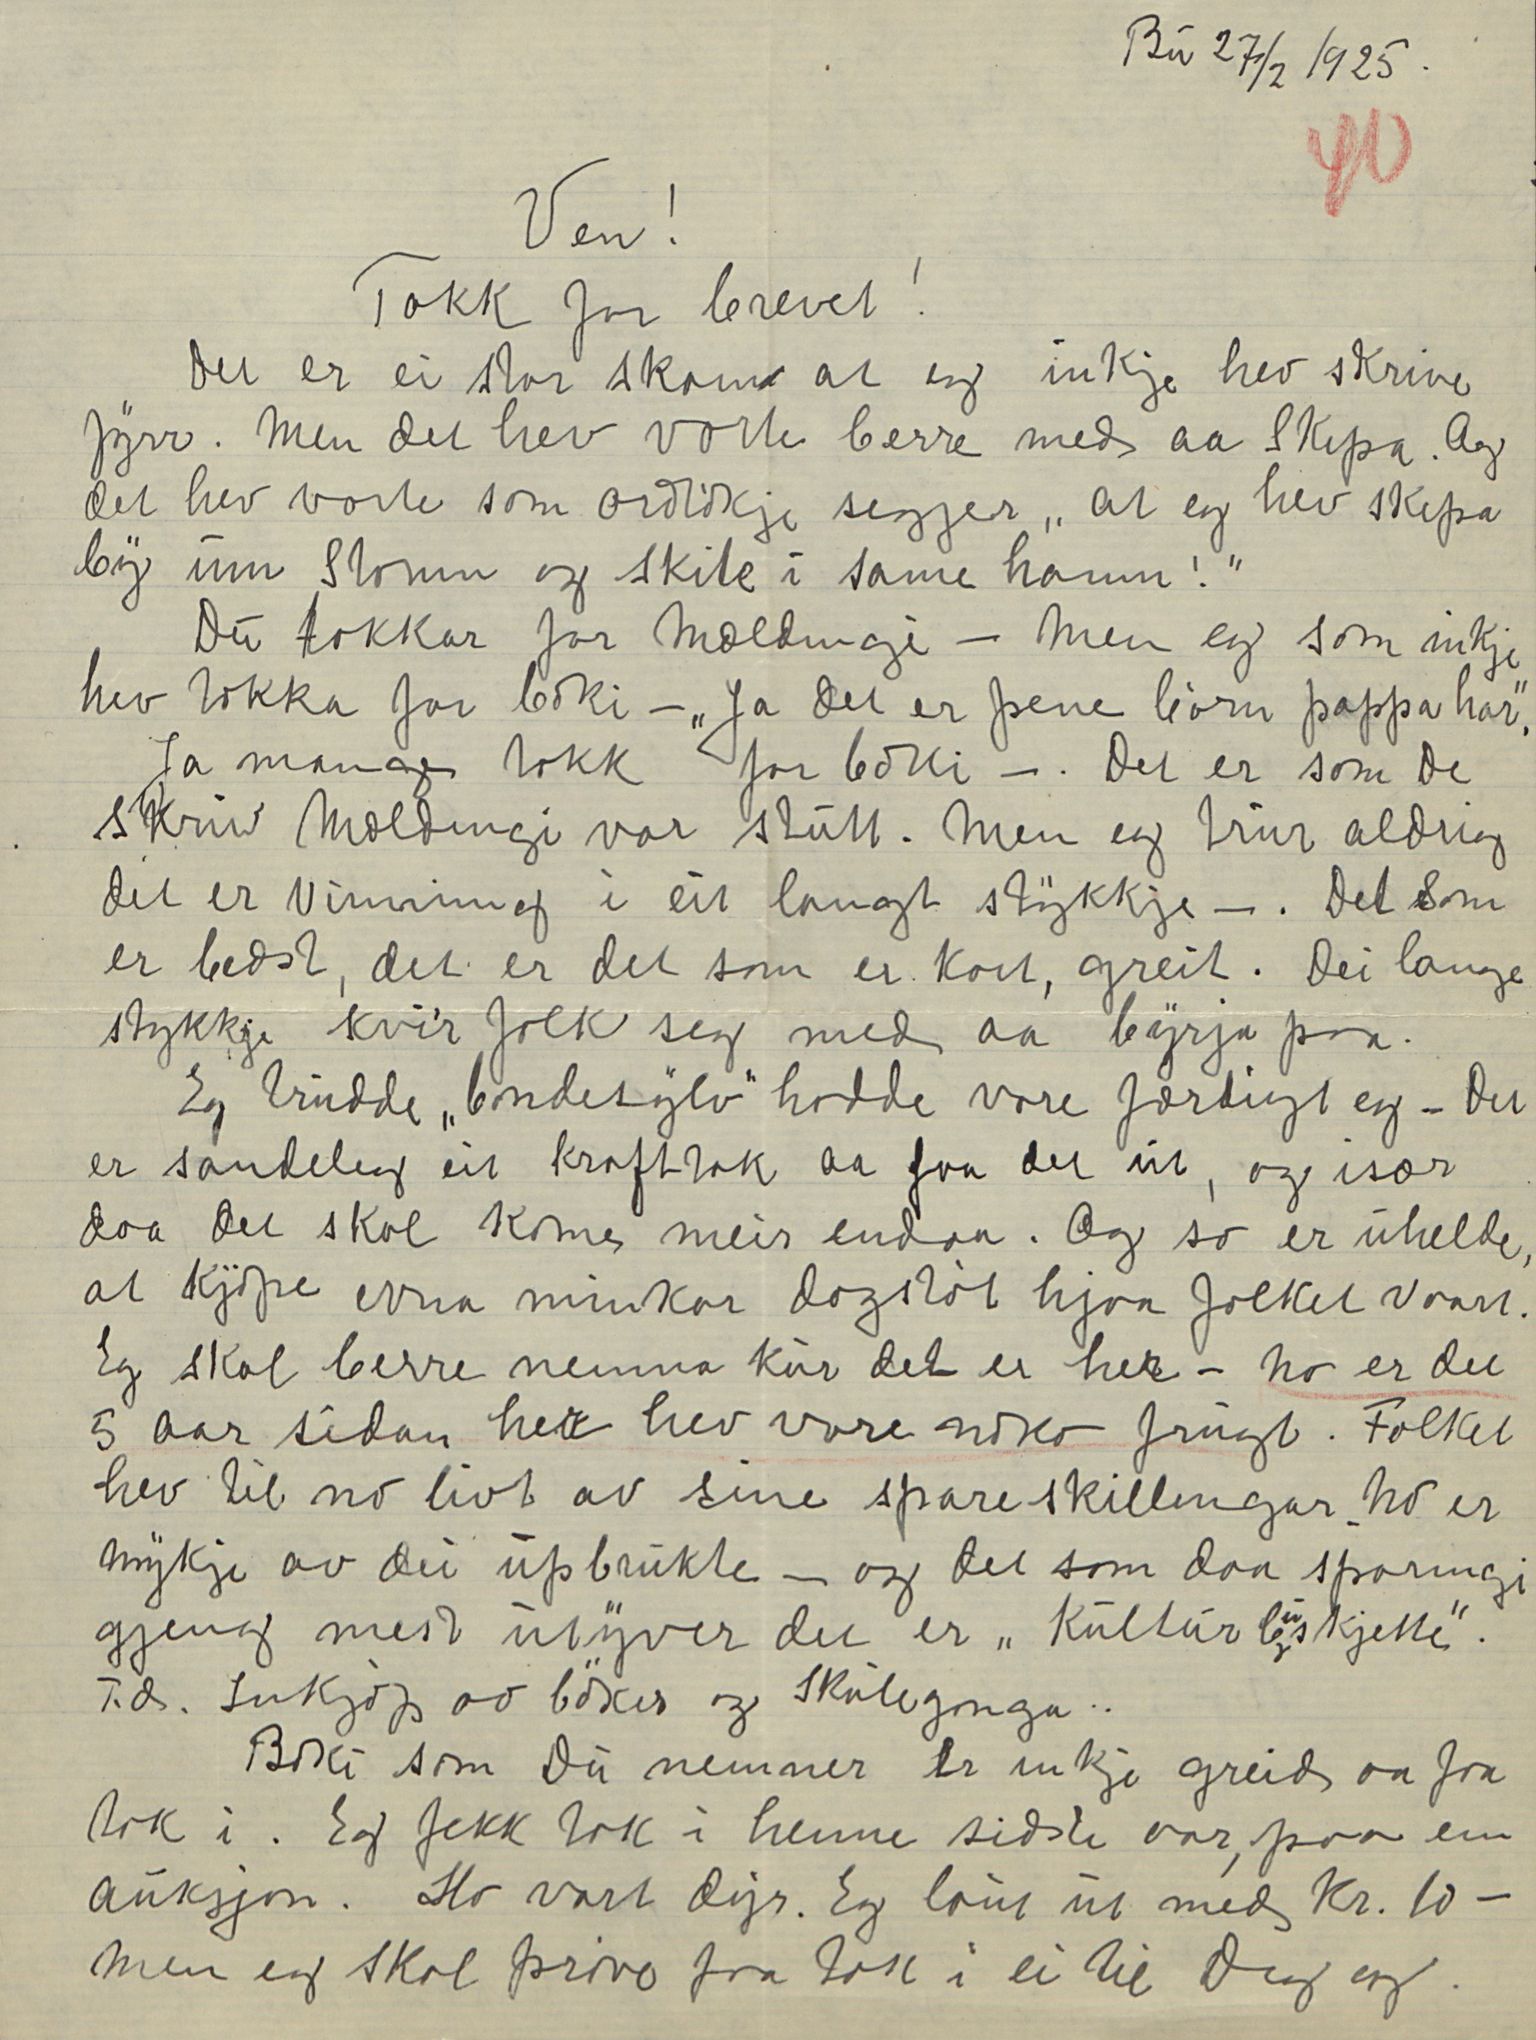 Bü 27/2 1925.
Ven!
Takk for brevet!
Det er ei stor skam at eg inkje hev skrive
fyrr. Men det hev vorte berre med aa skipa. Og
det hev vorte som ordtökje segjer „at eg hev skipa
bÿ üm Stomn og skite i same hamn!"
Dü takkar for Mældingi – Men eg som inkje
hev takka for bóki – „Ja det er pene börn pappa har".
Ja mange takk for bóki –. Det er som De
skriv Mældingi var stütt. Men eg trur aldrig
det er Vinning i eit langt stÿkkje –. Det som
er bedst, det er det som er kort, greit. Dei lange
stykkje kvir folk seg med aa bÿrja paa.
Eg trüdde „bondesÿlv" hadde vore færdigt eg – Det
er sandeleg eit krafttak aa faa det üt, og især
daa det skal kome meir endaa. Og so er ühelde,
at kjöpe evna minkar dagstöt hjaa folket vaart.
Eg skal berre nemna kür det er her – no er det
5 aar sidan her hev vore noko frügt. Folket
hev til no livt av sine spareskillingar. No er
mÿkje av dei üpbrükte – og det som daa sparingi
gjeng mest ütÿver det er „Kültür büskjette".
T.d. Inkjöp av böker og Skülegonga..
Bóki som Dü nemner er inkje greid aa faa
tak i. Eg fekk tak i henne sidste vaar, paa ein
aüksjon. Ho vart dÿr. Eg laüt üt med Kr. 10 –
men eg skal pröve faa tak i ei til Deg og.